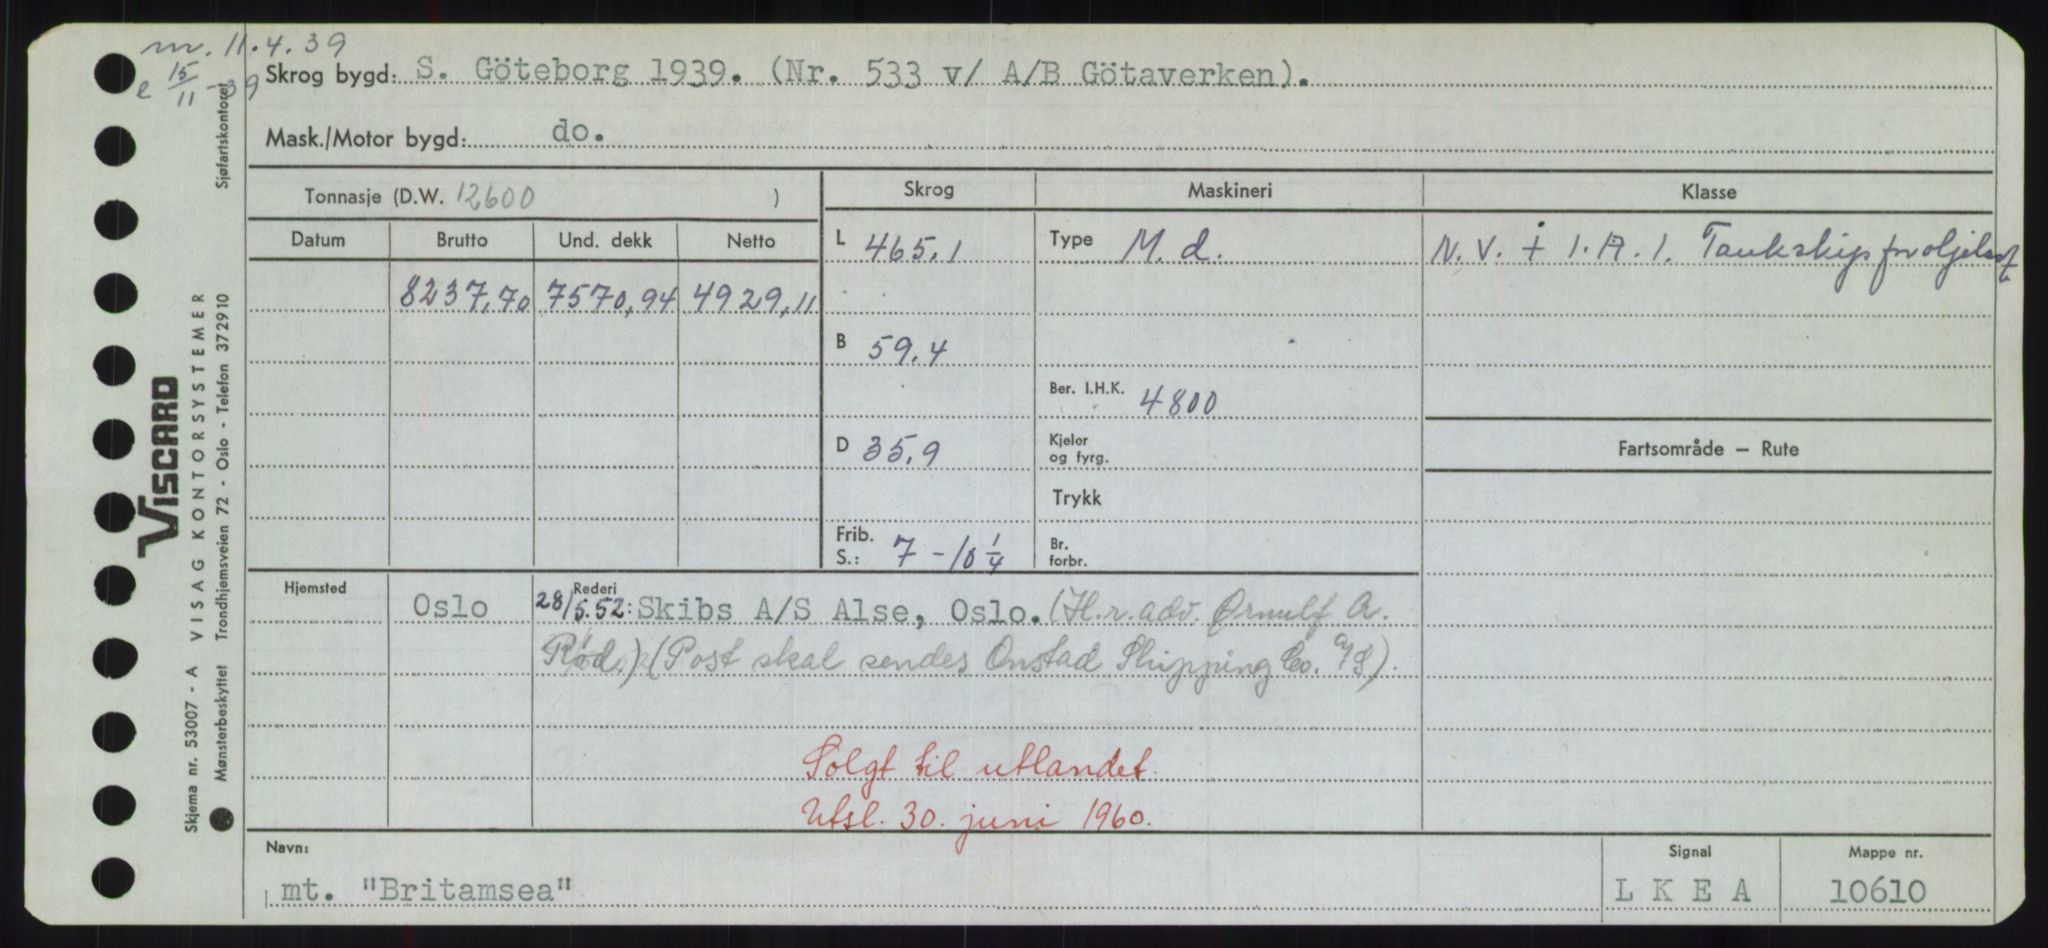 m. 11.4.39
e 15/11-39
Skrog bygd: S. Göteborg 1939. (Nr. 533 v/ A/B Götaverken).
Mask./Motor bygd: do.
Tonnasje (D.W. 12600 )
Skrog
Maskineri
Klasse
Datum
Brutto
Und. dekk
Netto
L 465,1
Type M. d.
N. V. + 1. A. 1. Tankskip for oljelast
8237,70 7570,94 4929,11
B 59,4
Ber. I.H.K. 4800
D 35,9
Kjeler
og fyrg.
Fartsområde – Rute
Trykk
Frib.
S.: 7 - 10 1/4
Br.
forbr.
Hjemsted
Oslo
Rederi
28/5.52: Skibs A/S Alse, Oslo. (H.r.adv. Ørnulf A.
Rød.) (Post skal sendes Onstad Shipping Co. A/S).
Solgt til utlandet.
Utsl. 30. juni 1960.
Navn:
mt. "Britamsea"
Signal
L K E A
Mappe nr.
10610
VISCARD
VISAG KONTORSYSTEMER
Skjema nr. 53007 - A
Mønsterbeskyttet Trondhjemsveien 72 - Oslo - Telefon 372910 Sjøfartskontoret